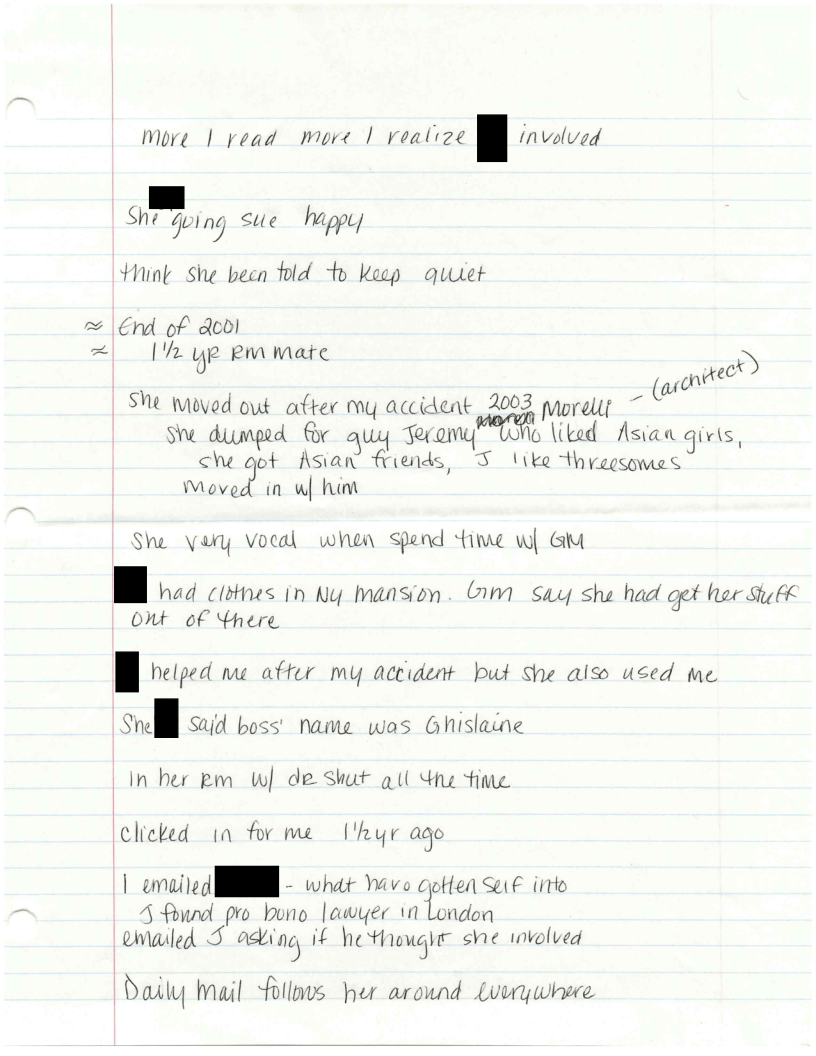 more I read more I realize involved
She going sue happy
think she been told to keep quiet
≈ End of 2001
≈ 1 1/2 yr rm mate
She moved out after my accident 2003 Morelli – (architect)
she dumped for guy Jeremy who liked Asian girls,
she got Asian friends, J like threesomes
moved in w/ him
She very vocal when spend time w/ GM
had clothes in NY mansion. Gm say she had get her stuff
out of there
helped me after my accident but she also used me
She said boss' name was Ghislaine
in her rm w/ dr shut all the time
clicked in for me 1 1/2 yr ago
I emailed - what have gotten self into
J found pro bono lawyer in London
emailed J asking if he thought she involved
Daily Mail follows her around everywhere